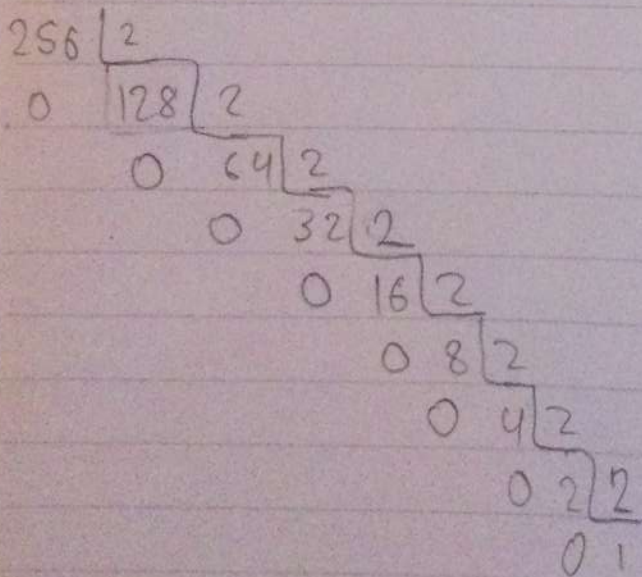 256 2
0 128 2
0 64 2
0 32 2
0 16 2
0 8 2
0 4 2
0 2 2
0 1